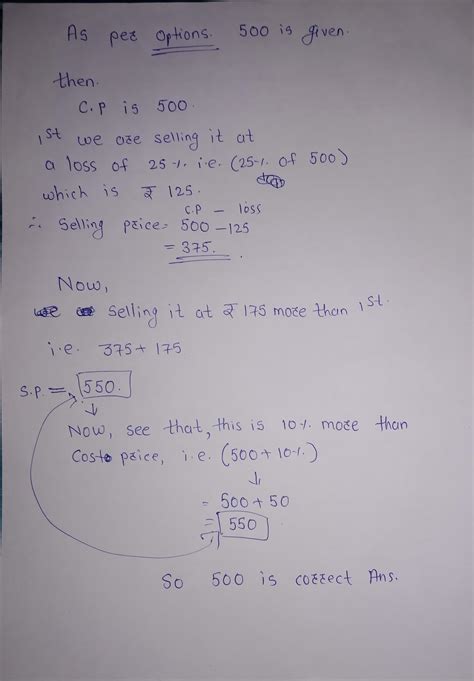 As per options. 500 is given.
then.
C.P is 500.
1st we are selling it at
a loss of 25% i.e. (25% of 500)
which is ₹ 125.
C.P - loss
∴ Selling price = 500 - 125
= 375.
Now,
Selling it at ₹ 175 more than 1st.
i.e. 375 + 175
S.P. = 550.
Now, see that, this is 10% more than
Cost price, i.e. (500 + 10%)
= 500 + 50
= 550
So 500 is correct Ans.